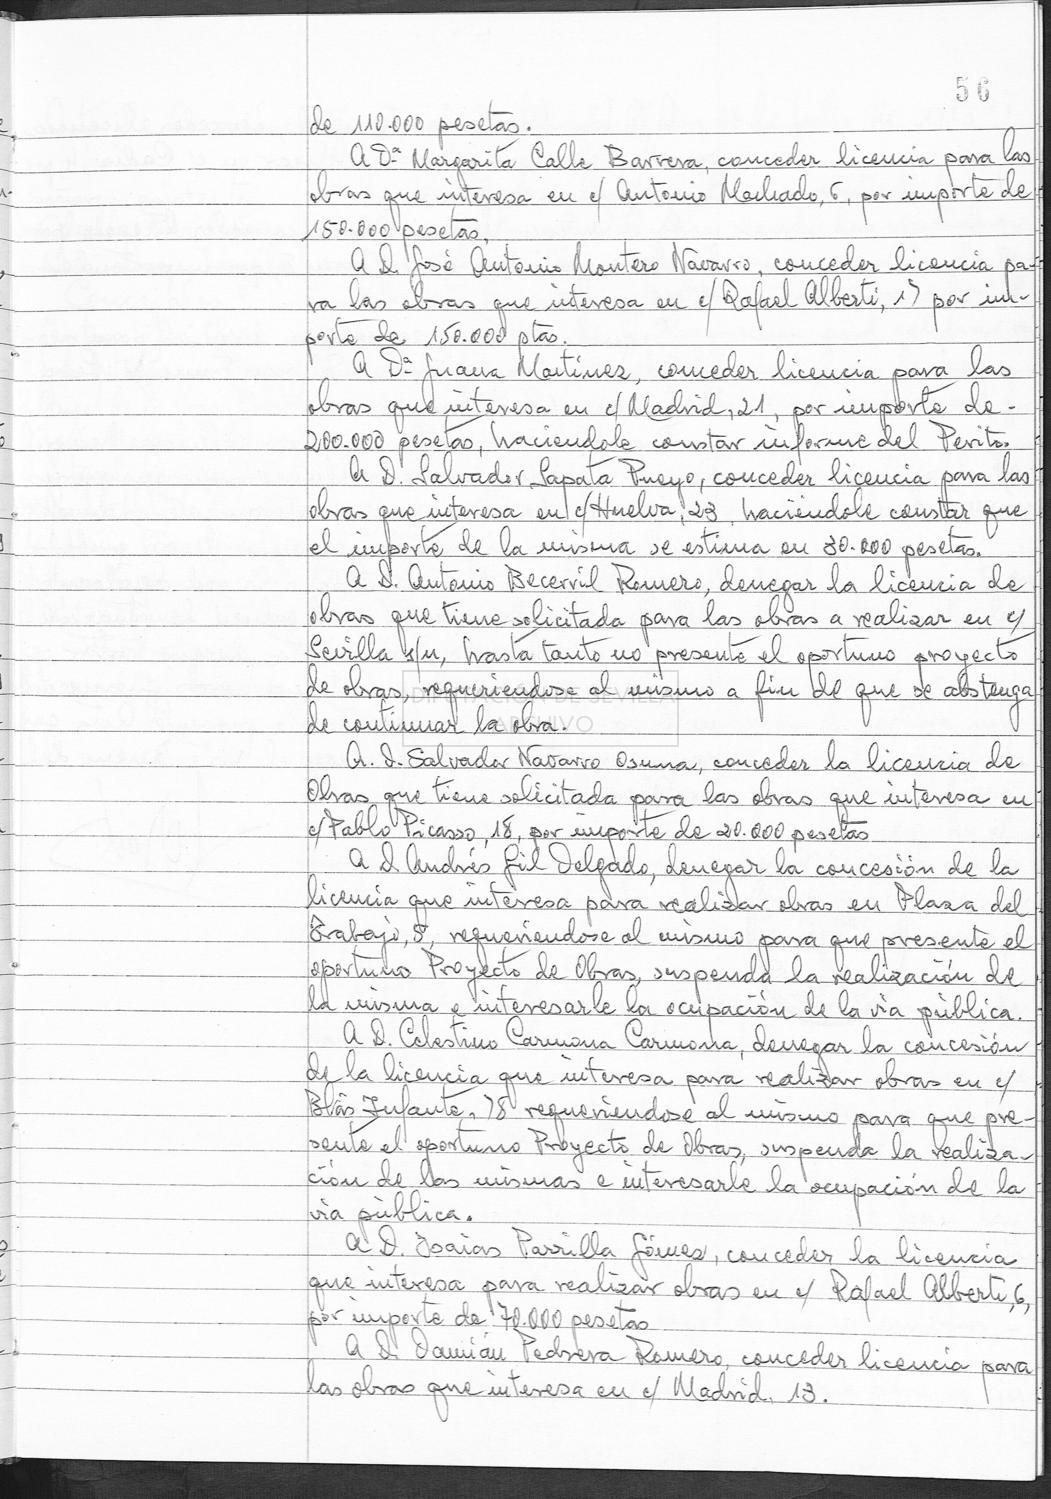 56
de 110.000 pesetas.
A Dª Margarita Calle Barrera, conceder licencia para las
obras que interesa en c/ Antonio Machado, 6, por importe de
150.000 pesetas,
A D. José Antonio Montero Navarro, conceder licencia pa-
ra las obras que interesa en c/ Rafael Alberti, 17 por im-
porte de 150.000 ptas.
A Dª Juana Martínez, conceder licencia para las
obras que interesa en c/ Madrid, 21, por importe de-
200.000 pesetas, haciendole constar informe del Perito.
A D. Salvador Sapata Pueyo, conceder licencia para las
obras que interesa en c/ Huelva, 23, haciéndole constar que
el importe de la misma se estima en 30.000 pesetas.
A D. Antonio Becerril Romero, denegar la licencia de
obras que tiene solicitada para las obras a realizar en c/
Sevilla s/n, hasta tanto no presente el oportuno proyecto
de obras, requeriendose al mismo a fin de que se abstenga
de continuar la obra.
DIPUTACIÓN DE SEVILLA
ARCHIVO
A. D. Salvador Navarro Osuna, conceder la licencia de
Obras que tiene solicitada para las obras que interesa en
c/ Pablo Picasso, 18, por importe de 20.000 pesetas
A D. Andrés Gil Delgado, denegar la concesión de la
licencia que interesa para realizar obras en Plaza del
Trabajo, 8, requeriendose al mismo para que presente el
oportuno Proyecto de Obras, suspenda la realización de
la misma e interesarle la ocupación de la via pública.
A D. Celestino Carmona Carmona, denegar la concesión
de la licencia que interesa para realizar obras en c/
Blás Infante, 78 requeriendose al mismo para que pre-
sente el oportuno Proyecto de Obras, suspenda la realiza-
ción de las mismas e interesarle la ocupación de la
via pública.
A D. Isaias Parrilla Gómez, conceder la licencia
que interesa para realizar obras en c/ Rafael Alberti, 6,
por importe de 70.000 pesetas
A D. Damián Pedrera Romero, conceder licencia para
las obras que interesa en c/ Madrid, 13.